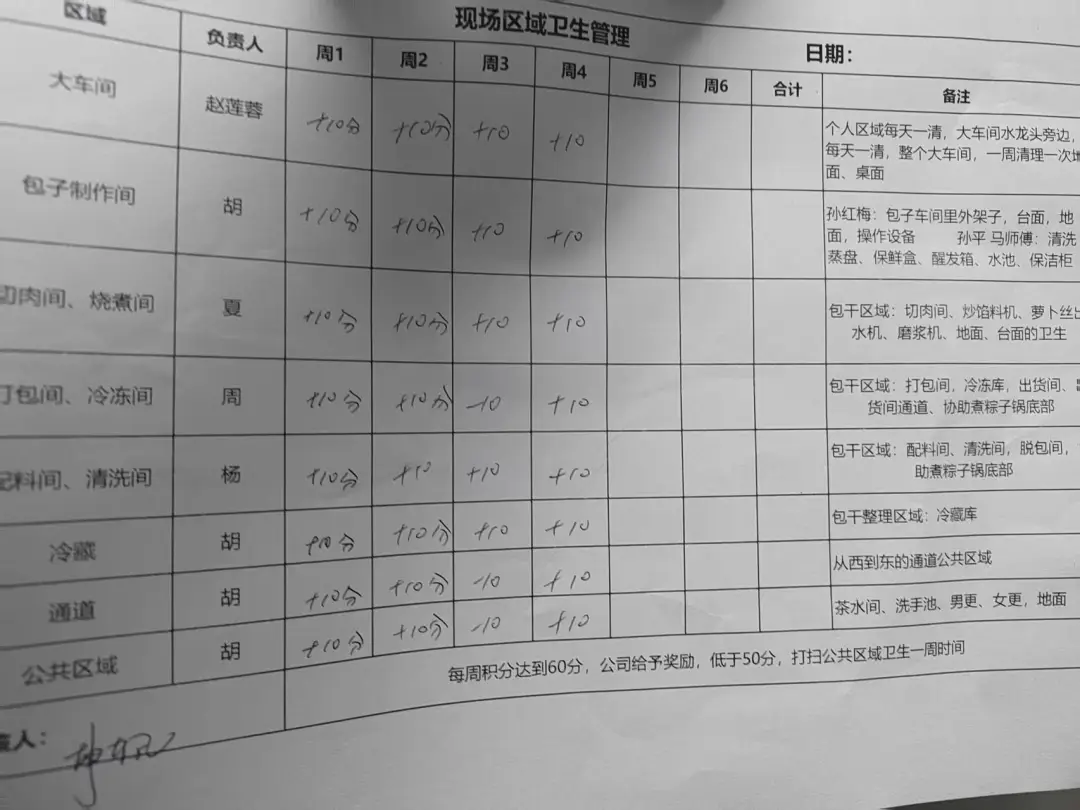 现场区域卫生管理
日期：
区域 负责人 周1 周2 周3 周4 周5 周6 合计 备注
大车间 赵莲蓉 +10分 +10分 +10 +10 个人区域每天一清，大车间水龙头旁边，
每天一清，整个大车间，一周清理一次地
面、桌面
包子制作间 胡 +10分 +10分 +10 +10 孙红梅：包子车间里外架子，台面，地
面，操作设备 孙平 马师傅：清洗
蒸盘、保鲜盒、醒发箱、水池、保洁柜
切肉间、烧煮间 夏 +10分 +10分 +10 +10 包干区域：切肉间、炒馅料机、萝卜丝出
水机、磨浆机、地面、台面的卫生
打包间、冷冻间 周 +10分 +10分 -10 +10 包干区域：打包间，冷冻库，出货间、
货间通道、协助煮粽子锅底部
配料间、清洗间 杨 +10分 +10 +10 +10 包干区域：配料间、清洗间，脱包间，
助煮粽子锅底部
冷藏 胡 +10分 +10分 +10 +10 包干整理区域：冷藏库
通道 胡 +10分 +10分 -10 +10 从西到东的通道公共区域
公共区域 胡 +10分 +10分 -10 +10 茶水间、洗手池、男更、女更，地面
每周积分达到60分，公司给予奖励，低于50分，打扫公共区域卫生一周时间
人：